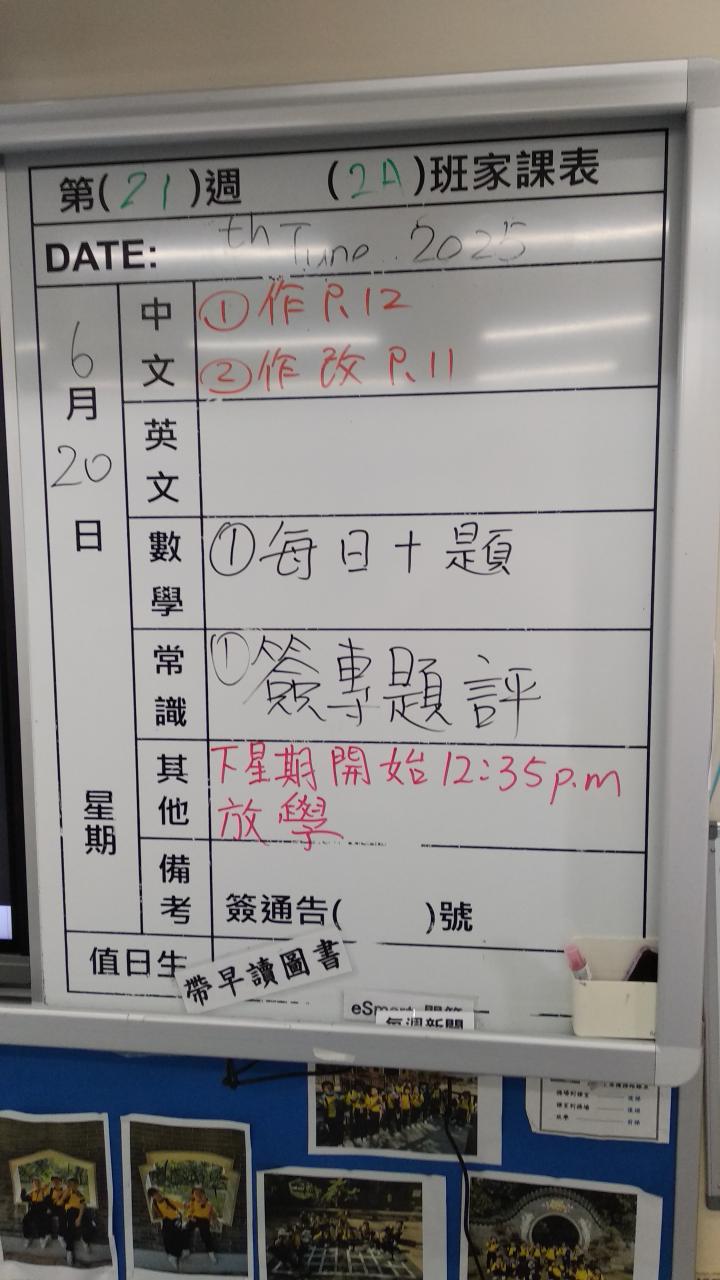 第(21)週 (2A)班家課表
DATE: th June 2025
6月20日
星期
中文
①作P.12
②作改P.11
英文
數學
①每日十題
常識
①簽專題評
其他
下星期開始12:35p.m
放學
備考
簽通告( )號
值日生
帶早讀圖書
eSmart
每週新聞